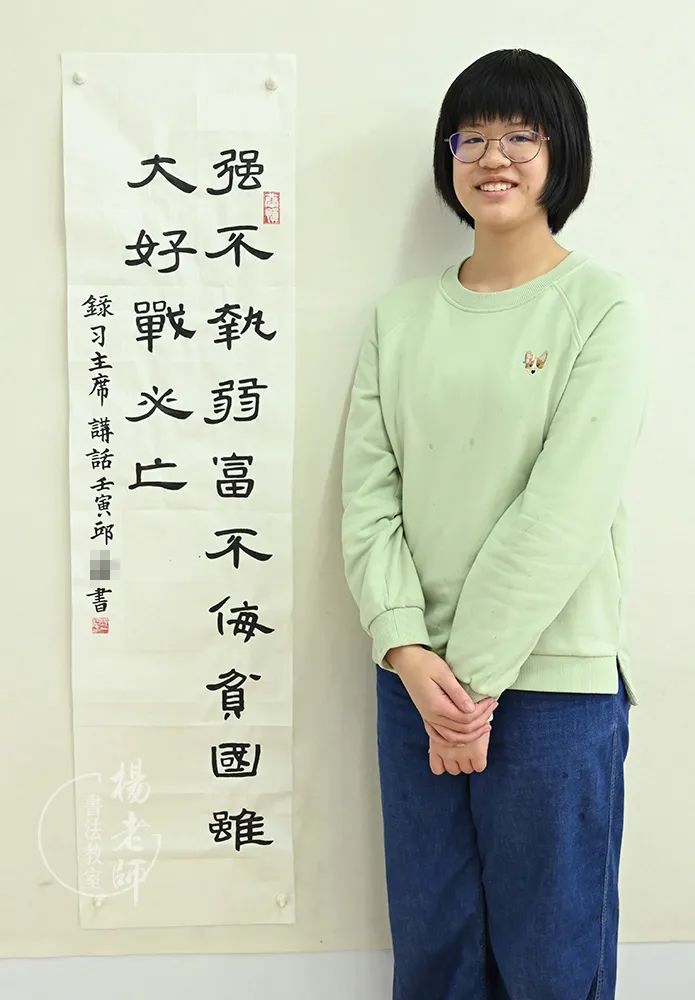 强不執弱富不侮貧國雖
大好戰必亡
録习主席講話壬寅邱書
楊老師
書法教室